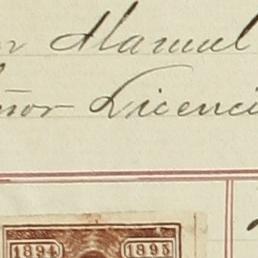 Manuel
Licenci
1894 1895